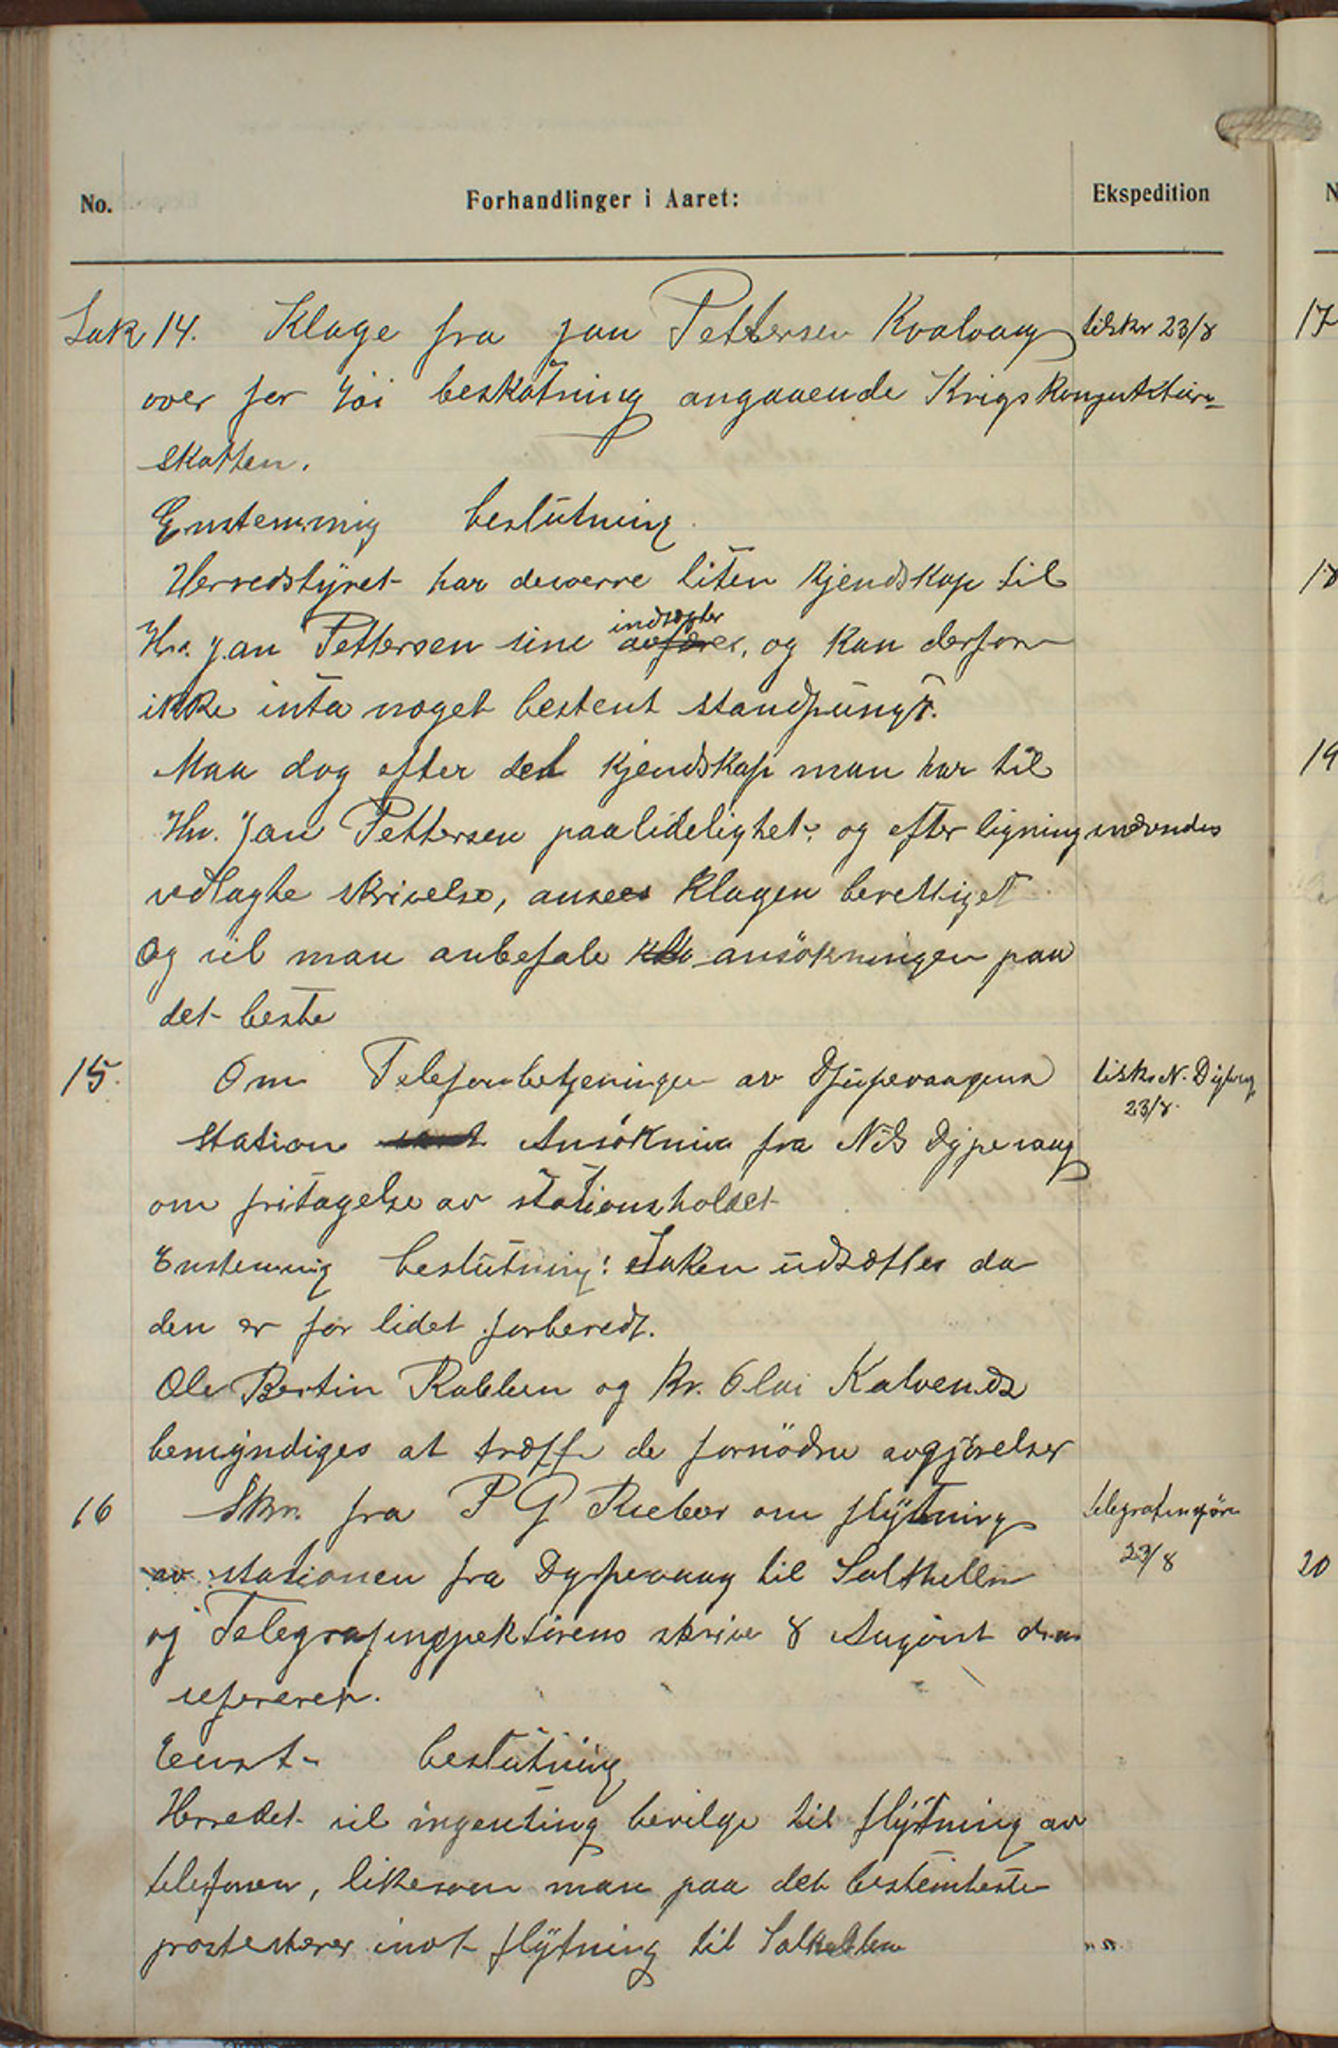 No.
Forhandlinger i Aaret:
Ekspedition
Sak 14. Klage fra Jan Pettersen Kvalvaag
tilskr 23/8
over for höi beskatning angaaende Krigskonjunkturskatten.
Enstemmig beslutning.
Herredstyret har deverre liten kjendskap til
Hr. Jan Pettersen sine indtægter, og kan derfor
ikke inta noget bestemt standpungt.
Maa dog efter det kjendskap man har til
Hr. Jan Pettersen paalidelighet. og efter ligningnævndes
vedlagte skrivelse, ansees klagen berettiget
Og vil man anbefale ansökningen paa
det beste
15. Om Telefonbetjeningen av Djupevaagens
tilskr N. Dypevag
23/8.
Station Ansökning fra Nils Dypevaag
om fritagelse av stationsholdet
Enstemmig beslutning: Saken udsættes da
den er for lidet forberedt.
Ole Bertin Rabben og Kr. Olai Kalvenes
bemyndiges at træffe de fornödne avgjörelser
16 Skr. fra P G Rieber om flytning
telegrafinspör
23/8
av stationen fra Dypevaag til Salthella
og Telegrafinspektörens skriv 8 August
refereret.
Enst. beslutning
Herredet vil ingenting bevilge til flytning av
telefonen, likesom man paa det bestemteste
prostesterer imot flytning til Salthella
17
18
19
20